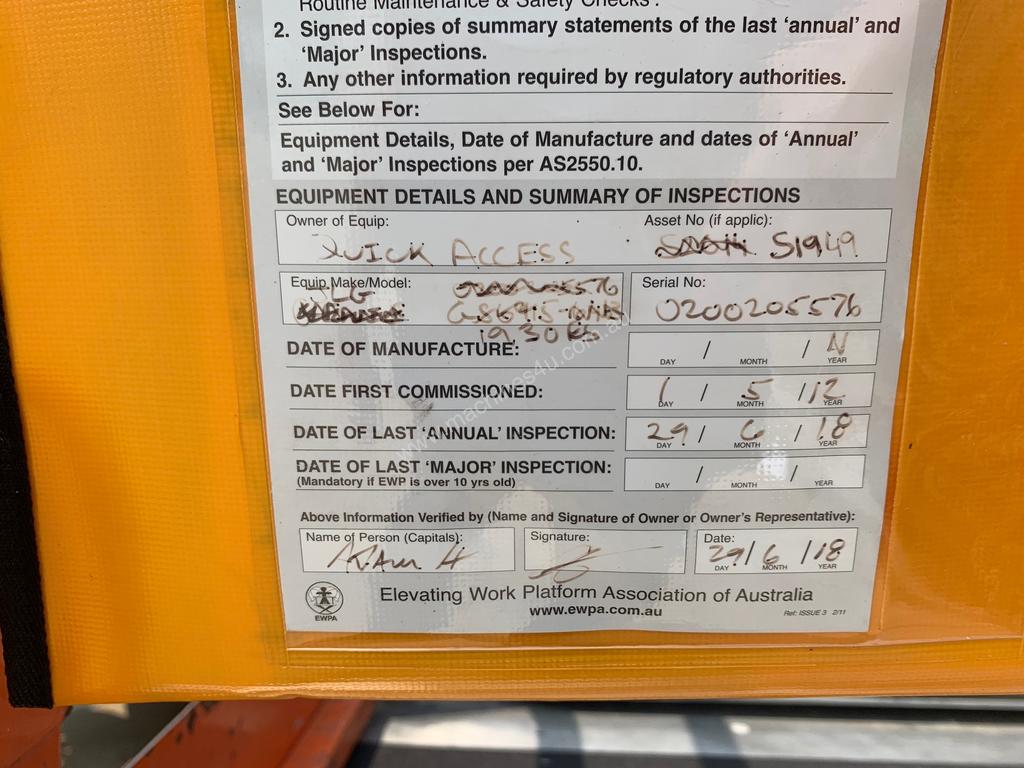 Routine Maintenance & Safety Checks.
2. Signed copies of summary statements of the last 'annual' and
'Major' Inspections.
3. Any other information required by regulatory authorities.
See Below For:
Equipment Details, Date of Manufacture and dates of 'Annual'
and 'Major' Inspections per AS2550.10.
EQUIPMENT DETAILS AND SUMMARY OF INSPECTIONS
Owner of Equip: Asset No (if applic):
QUICK ACCESS S1949
Equip.Make/Model: Serial No:
JLG 0200205576
1930ES
DATE OF MANUFACTURE: / / N
DAY MONTH YEAR
DATE FIRST COMMISSIONED: 1 / 5 / 12
DAY MONTH YEAR
DATE OF LAST 'ANNUAL' INSPECTION: 29 / 6 / 18
DAY MONTH YEAR
DATE OF LAST 'MAJOR' INSPECTION: / /
(Mandatory if EWP is over 10 yrs old) DAY MONTH YEAR
Above Information Verified by (Name and Signature of Owner or Owner's Representative):
Name of Person (Capitals): Signature: Date:
H 29/6/18
DAY MONTH YEAR
Elevating Work Platform Association of Australia
EWPA www.ewpa.com.au Ref: ISSUE 3 2/11